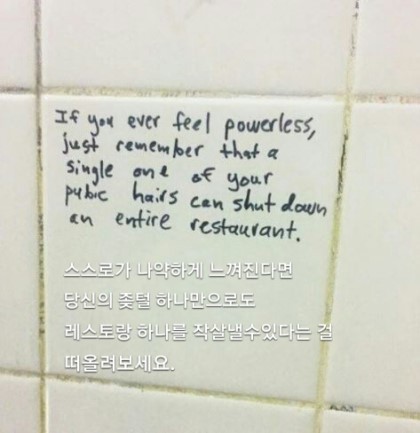 If you ever feel powerless,
just remember that a
single one of your
pubic hairs can shut down
an entire restaurant.
스스로가 나약하게 느껴진다면
당신의 좆털 하나만으로도
레스토랑 하나를 작살낼수있다는 걸
떠올려보세요.